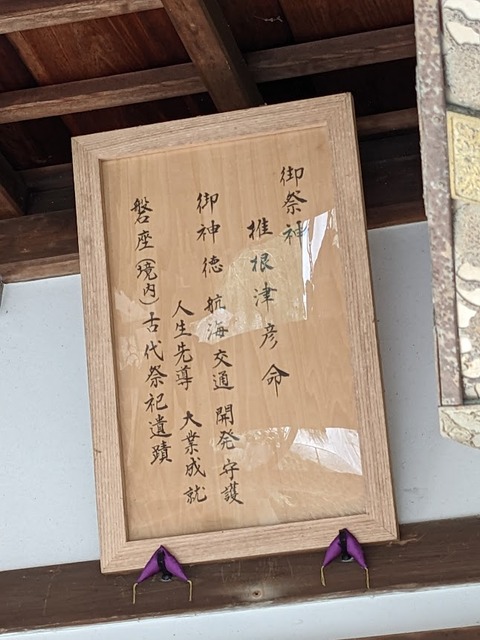 御祭神
椎根津彦命
御神徳 航海 交通 開発 守護
人生先導 大業成就
磐座(境内)古代祭祀遺蹟